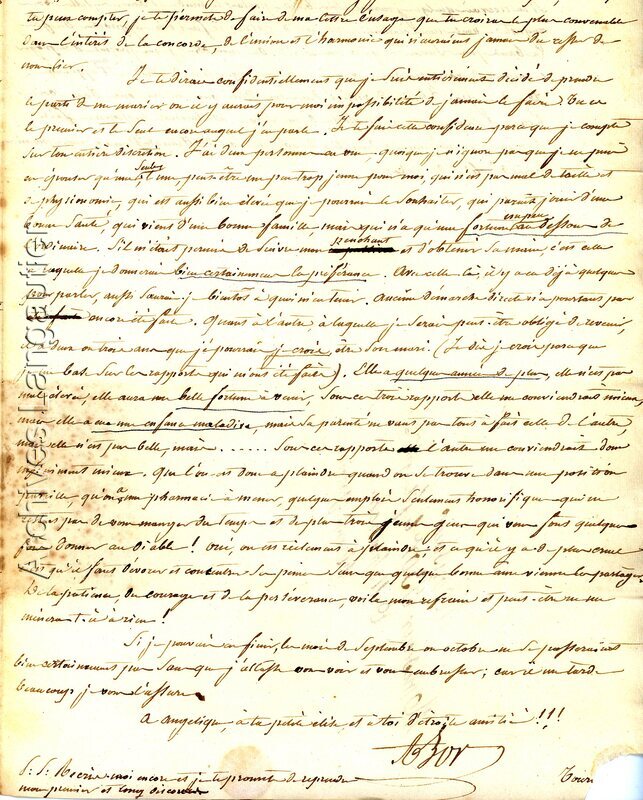 tu peux compter, je te permets de faire de ma lettre l'usage que tu croiras le plus convenable
dans l'intérêt de la concorde, de l'union et l'harmonie qui n'auraient jamais du cesser de
nous lier.
Je te dirai confidentiellement que je suis entièrement décidé de prendre
le parti de me marier ou il y aurait pour moi impossibilité de jamais le faire. Tu es
le premier et le seul encore auquel j'en parle. Je te fais cette confidence parce que je compte
sur ton entière discrétion. J'ai deux personnes en vue, quoique je n'ignore pas que je ne puis
en épouser qu'une seule; l'une, peut être un peu trop jeune pour moi, qui n'est pas mal de taille et
de physionomie, qui est aussi bien élevée que je pourrais le souhaiter, qui parait jouir d'une
bonne santé, qui vient d'une bonne famille mais qui n'a qu'une fortune un peu au dessous de
l'ordinaire. S'il m'était permis de suivre mon penchant et d'obtenir sa main, c'est celle
à laquelle je donnerai bien certainement la préférence. Avec celle là, il y a eu déjà quelque
pour parler, aussi saurai je bientôt à quoi m'en tenir. Aucune démarche directe n'a pourtant pas
encore été faite. Quant à l'autre à laquelle je serai peut-être obligé de revenir,
deux ou trois ans que je pourrais je crois être son mari. (Je dis je crois parce que
je me base sur les rapports qui m'ont été faits). Elle a quelques années de plus, elle n'est pas
mal élevée, elle aura une belle fortune à venir, sous ce trois rapports elle me conviendrait mieux,
mais elle a eu une enfance maladive, mais sa parenté ne vaut pas tout à fait celle de l'autre,
mais elle n'est pas belle, mais ...... Sous ces rapports l'autre me conviendrait donc
infiniment mieux. Que l'on est donc a plaindre quand on se trouve dans une position
pareille, qu'on a une pharmacie à mener, quelques emplois seulement honorifiques qui ne
de vous manger du temps et de plus trois jeunes gens qui vous font quelque
fois donner au diable! Oui, on est réellement à plaindre; et ce qu'il y a de plus cruel
c'est qu'il faut dévorer et concentrer sa peine sans que quelque bonne âme vienne la partager.
De la patience, du courage et de la persévérance, voilà mon refrain et peut-être ne me
mènera-t-il à rien!
Si je pouvais en finir, les mois de Septembre ou octobre ne se passeraient
bien certainement pas sans que j'allasse vous voir et vous embrasser; car il me tarde
beaucoup je vous l'assure.
A Angélique, à ta petite élise et à toi d'étroite amitié!!!
P. S. Récris moi encore et je te promets de reprendre
mon premier et long discours
Archives Languedoc